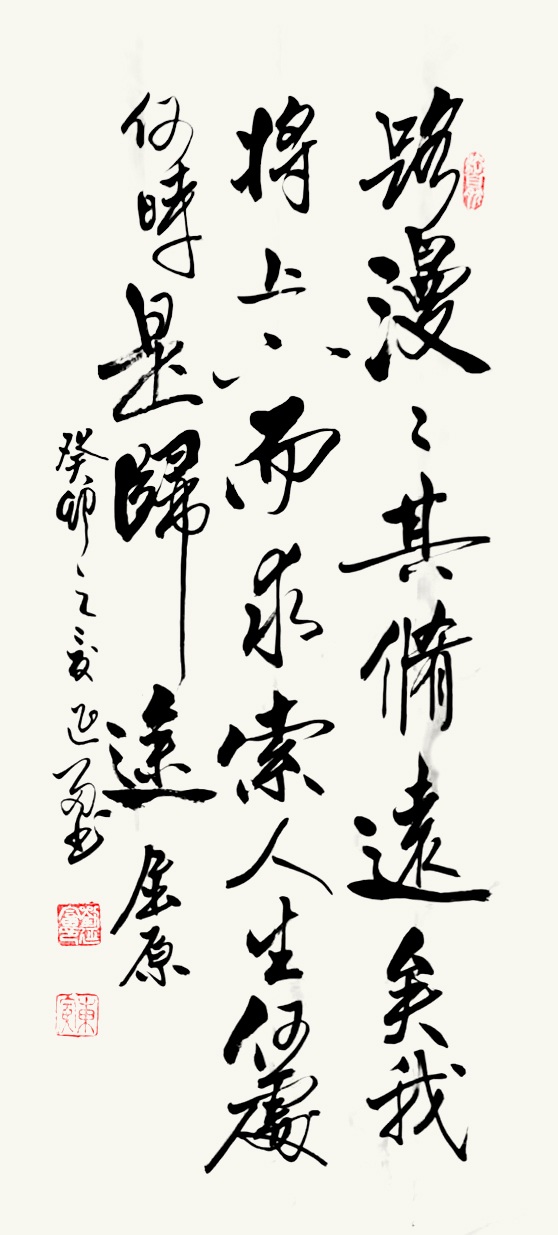 路漫々其脩遠矣我
將上下而求索人生何處
何時是歸途 屈原
癸卯之夏